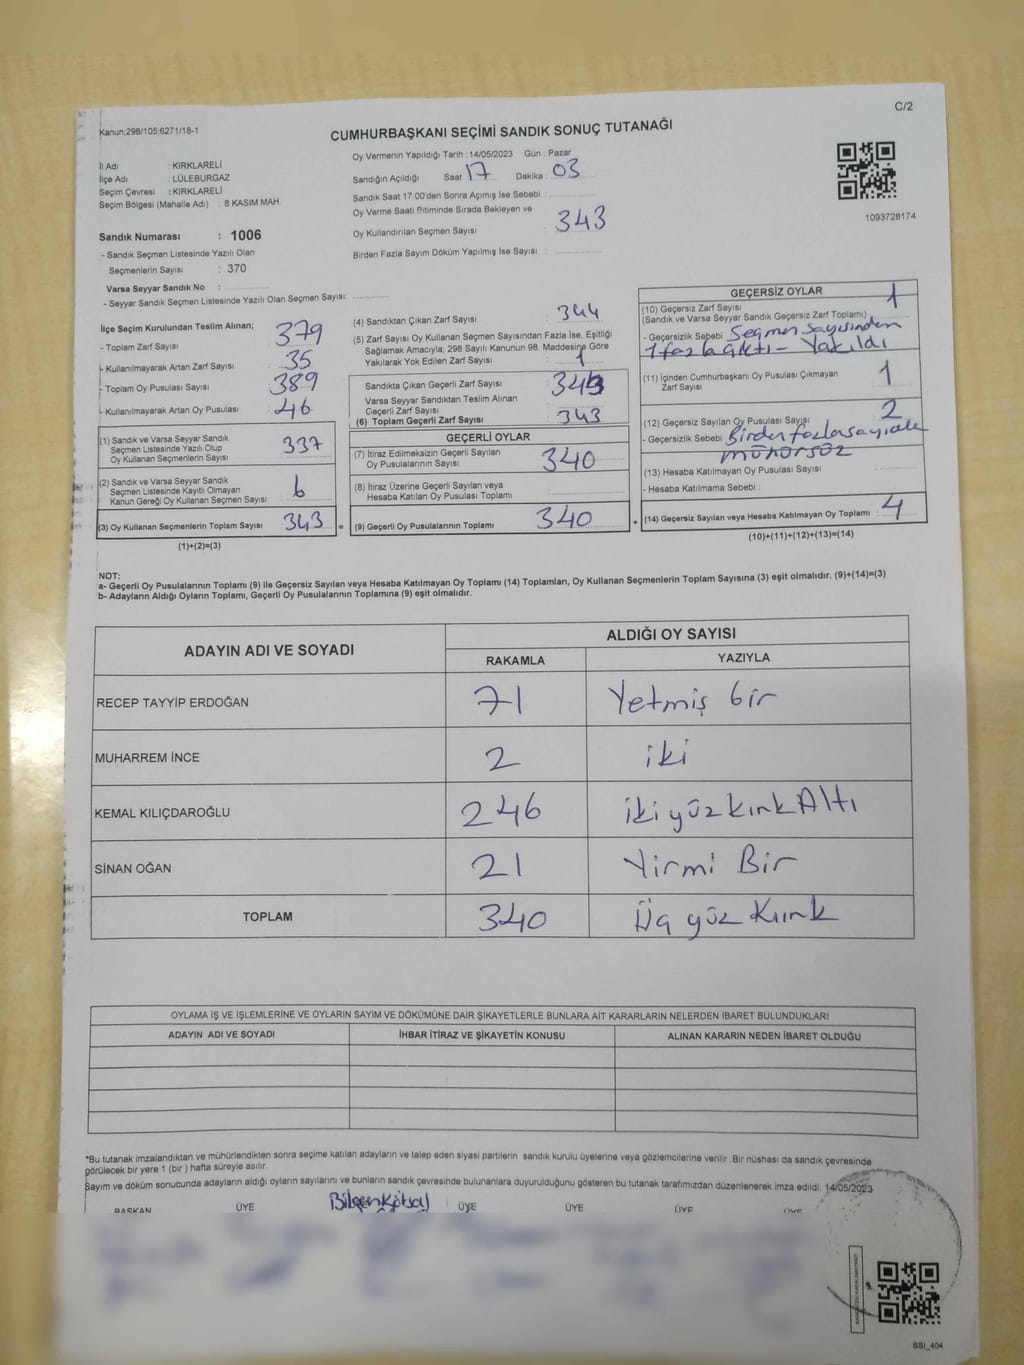 C/2
Kanun;298/105;6271/18-1
CUMHURBAŞKANI SEÇİMİ SANDIK SONUÇ TUTANAĞI
İl Adı : KIRKLARELİ
İlçe Adı : LÜLEBURGAZ
Seçim Çevresi : KIRKLARELİ
Seçim Bölgesi (Mahalle Adı) : 8 KASIM MAH.
Sandık Numarası : 1006
- Sandık Seçmen Listesinde Yazılı Olan
Seçmenlerin Sayısı : 370
Varsa Seyyar Sandık No :
- Seyyar Sandık Seçmen Listesinde Yazılı Olan Seçmen Sayısı:
Oy Vermenin Yapıldığı Tarih : 14/05/2023 Gün : Pazar
Sandığın Açıldığı Saat 17 Dakika : 03
Sandık Saat 17:00'den Sonra Açılmış İse Sebebi :
Oy Verme Saati Bitiminde Sırada Bekleyen ve
Oy Kullandırılan Seçmen Sayısı : 343
Birden Fazla Sayım Döküm Yapılmış İse Sayısı :
1093728174
İlçe Seçim Kurulundan Teslim Alınan;
- Toplam Zarf Sayısı : 379
- Kullanılmayarak Artan Zarf Sayısı : 35
- Toplam Oy Pusulası Sayısı : 389
- Kullanılmayarak Artan Oy Pusulası : 46
(1) Sandık ve Varsa Seyyar Sandık
Seçmen Listesinde Yazılı Olup
Oy Kullanan Seçmenlerin Sayısı : 337
(2) Sandık ve Varsa Seyyar Sandık
Seçmen Listesinde Kayıtlı Olmayan
Kanun Gereği Oy Kullanan Seçmen Sayısı : 6
(3) Oy Kullanan Seçmenlerin Toplam Sayısı : 343
(1)+(2)=(3)
=
(4) Sandıktan Çıkan Zarf Sayısı : 344
(5) Zarf Sayısı Oy Kullanan Seçmen Sayısından Fazla İse, Eşitliği
Sağlamak Amacıyla; 298 Sayılı Kanunun 98. Maddesine Göre
Yakılarak Yok Edilen Zarf Sayısı : 1
Sandıkta Çıkan Geçerli Zarf Sayısı : 343
Varsa Seyyar Sandıktan Teslim Alınan
Geçerli Zarf Sayısı :
(6) Toplam Geçerli Zarf Sayısı : 343
GEÇERLİ OYLAR
(7) İtiraz Edilmeksizin Geçerli Sayılan
Oy Pusulalarının Sayısı : 340
(8) İtiraz Üzerine Geçerli Sayılan veya
Hesaba Katılan Oy Pusulası Toplamı :
(9) Geçerli Oy Pusulalarının Toplamı : 340
+
GEÇERSİZ OYLAR
(10) Geçersiz Zarf Sayısı : 1
(Sandık ve Varsa Seyyar Sandık Geçersiz Zarf Toplamı)
- Geçersizlik Sebebi : Seçmen sayısından
1 fazla çıktı - Yakıldı
(11) İçinden Cumhurbaşkanı Oy Pusulası Çıkmayan
Zarf Sayısı : 1
(12) Geçersiz Sayılan Oy Pusulası Sayısı : 2
- Geçersizlik Sebebi : Birden
mühürsüz
(13) Hesaba Katılmayan Oy Pusulası Sayısı :
- Hesaba Katılmama Sebebi :
(14) Geçersiz Sayılan veya Hesaba Katılmayan Oy Toplamı : 4
(10)+(11)+(12)+(13)=(14)
NOT:
a- Geçerli Oy Pusulalarının Toplamı (9) ile Geçersiz Sayılan veya Hesaba Katılmayan Oy Toplamı (14) Toplamları, Oy Kullanan Seçmenlerin Toplam Sayısına (3) eşit olmalıdır. (9)+(14)=(3)
b- Adayların Aldığı Oyların Toplamı, Geçerli Oy Pusulalarının Toplamına (9) eşit olmalıdır.
ADAYIN ADI VE SOYADI ALDIĞI OY SAYISI
RAKAMLA YAZIYLA
RECEP TAYYİP ERDOĞAN 71 Yetmiş bir
MUHARREM İNCE 2 iki
KEMAL KILIÇDAROĞLU 246 iki yüz kırk Altı
SİNAN OĞAN 21 Yirmi Bir
TOPLAM 340 Üç yüz Kırk
OYLAMA İŞ VE İŞLEMLERİNE VE OYLARIN SAYIM VE DÖKÜMÜNE DAİR ŞİKAYETLERLE BUNLARA AİT KARARLARIN NELERDEN İBARET BULUNDUKLARI
ADAYIN ADI VE SOYADI İHBAR İTİRAZ VE ŞİKAYETİN KONUSU ALINAN KARARIN NEDEN İBARET OLDUĞU
*Bu tutanak imzalandıktan ve mühürlendikten sonra seçime katılan adayların ve talep eden siyasi partilerin sandık kurulu üyelerine veya gözlemcilerine verilir. Bir nüshası da sandık çevresinde
görülecek bir yere 1 (bir ) hafta süreyle asılır.
Sayım ve döküm sonucunda adayların aldığı oyların sayılarını ve bunların sandık çevresinde bulunanlara duyurulduğunu gösteren bu tutanak tarafımızdan düzenlenerek imza edildi. 14/05/2023
BAŞKAN ÜYE Bilgen Köksal ÜYE ÜYE ÜYE ÜYE
SSI_404